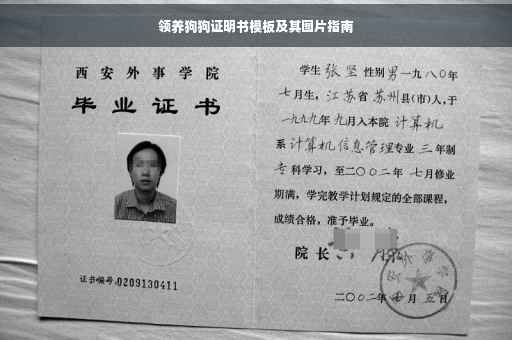 领养狗狗证明书模板及其图片指南
西安外事学院
毕业证书
证书编号:0209130411
学生张坚性别男一九八〇年
七月生，江苏省苏州县(市)人,于
一九九九年九月入本院计算机
系计算机信息管理专业三年制
专科学习，至二〇〇二年七月修业
期满，学完教学计划规定的全部课程，
成绩合格，准予毕业。
院长
二〇〇二年 月五日